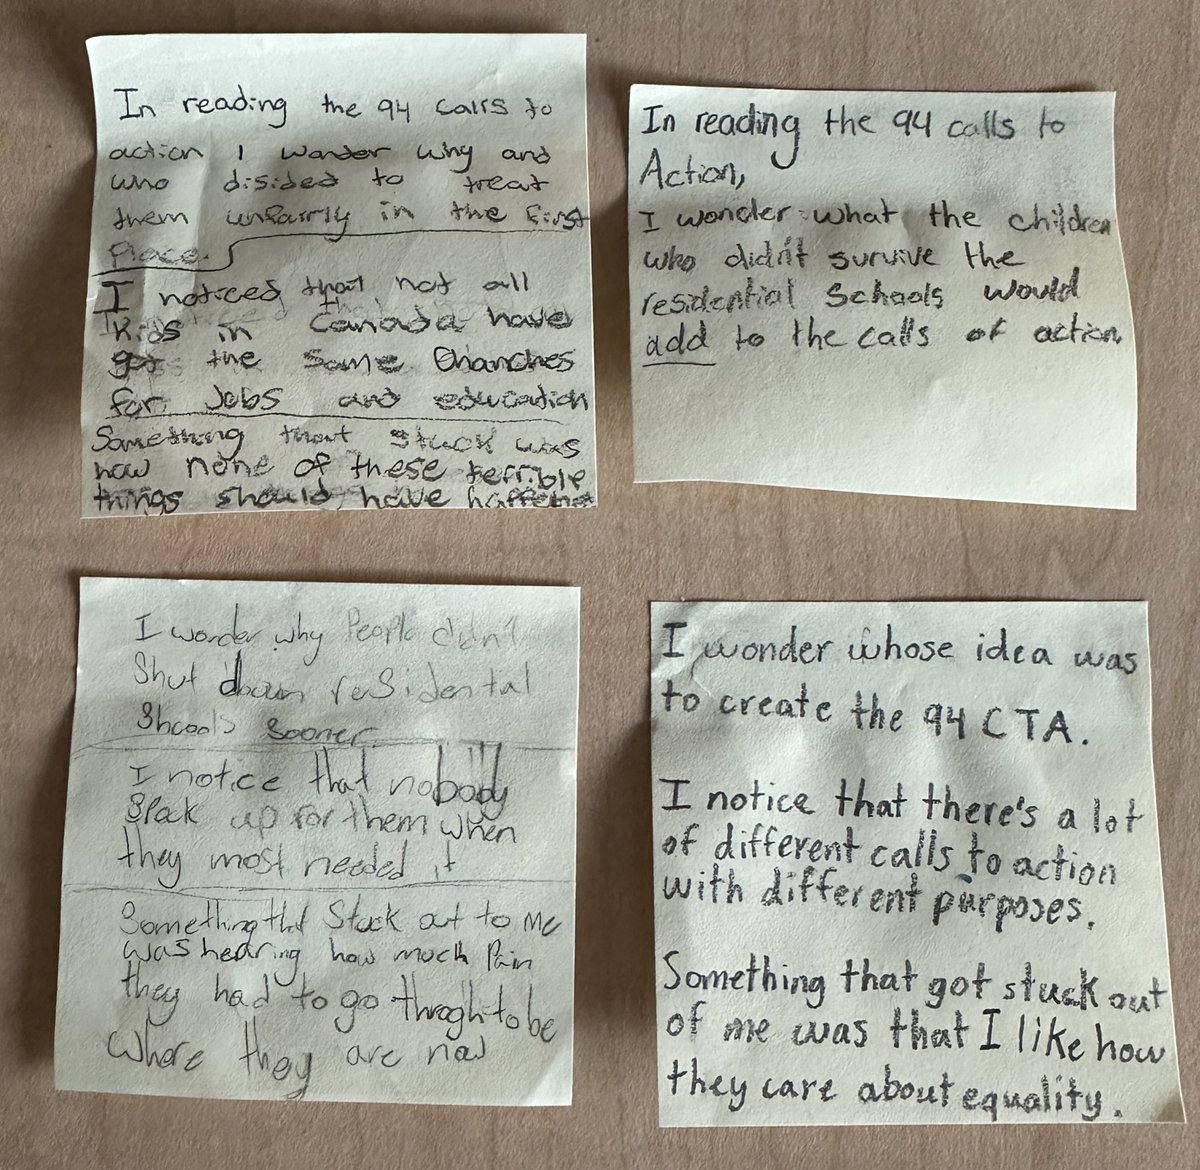 In reading the 94 calls to
action I wonder why and
who disided to treat
them unfairly in the first
place.
I noticed that not all
kids in Canada have
the same Chanches
for Jobs and education
Something that stuck was
how none of these terrible
things should have happened
In reading the 94 calls to
Action,
I wonder what the children
who didn't survive the
residential Schools would
add to the calls of action
I wonder why People didn't
Shut down residental
Shcools sooner
I notice that nobody
up for them when
they most needed it
Something that Stuck out to Me
was hearing how much Pain
they had to go throgh to be
Where they are now
I wonder whose idea was
to create the 94 CTA.
I notice that there's a lot
of different calls to action
with different purposes.
Something that got stuck out
of me was that I like how
they care about equality.